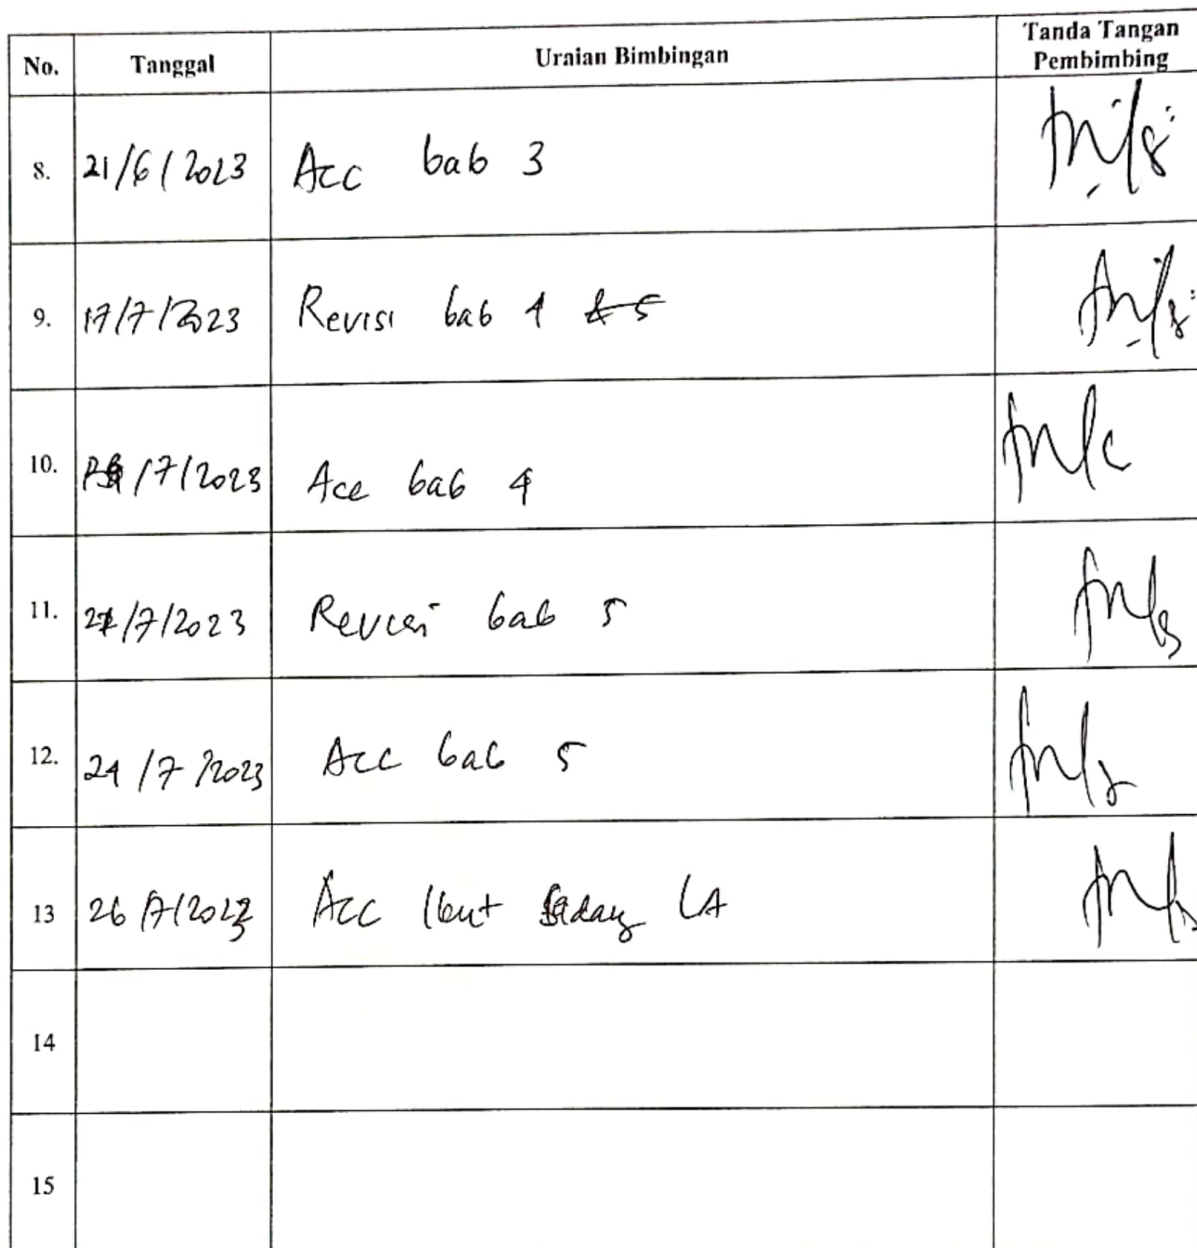 No. Tanggal Uraian Bimbingan Tanda Tangan
Pembimbing
8. 21/6/2023 Acc bab 3
9. 17/7/2023 Revisi bab 4 & 5
10. /7/2023 Acc bab 4
11. /7/2023 Revisi bab 5
12. 24/7/2023 Acc bab 5
13 26/7/2023 Acc Ikut Sidang LA
14
15